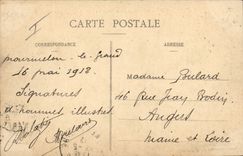 CARTE POSTALE
CORRESPONDANCE
ADRESSE
Mourmelon le grand
16 mai 1912
Signatures
d'hommes illustres
Madame Poulard
46 Rue Jean Bodin
Angers
Maine et Loire